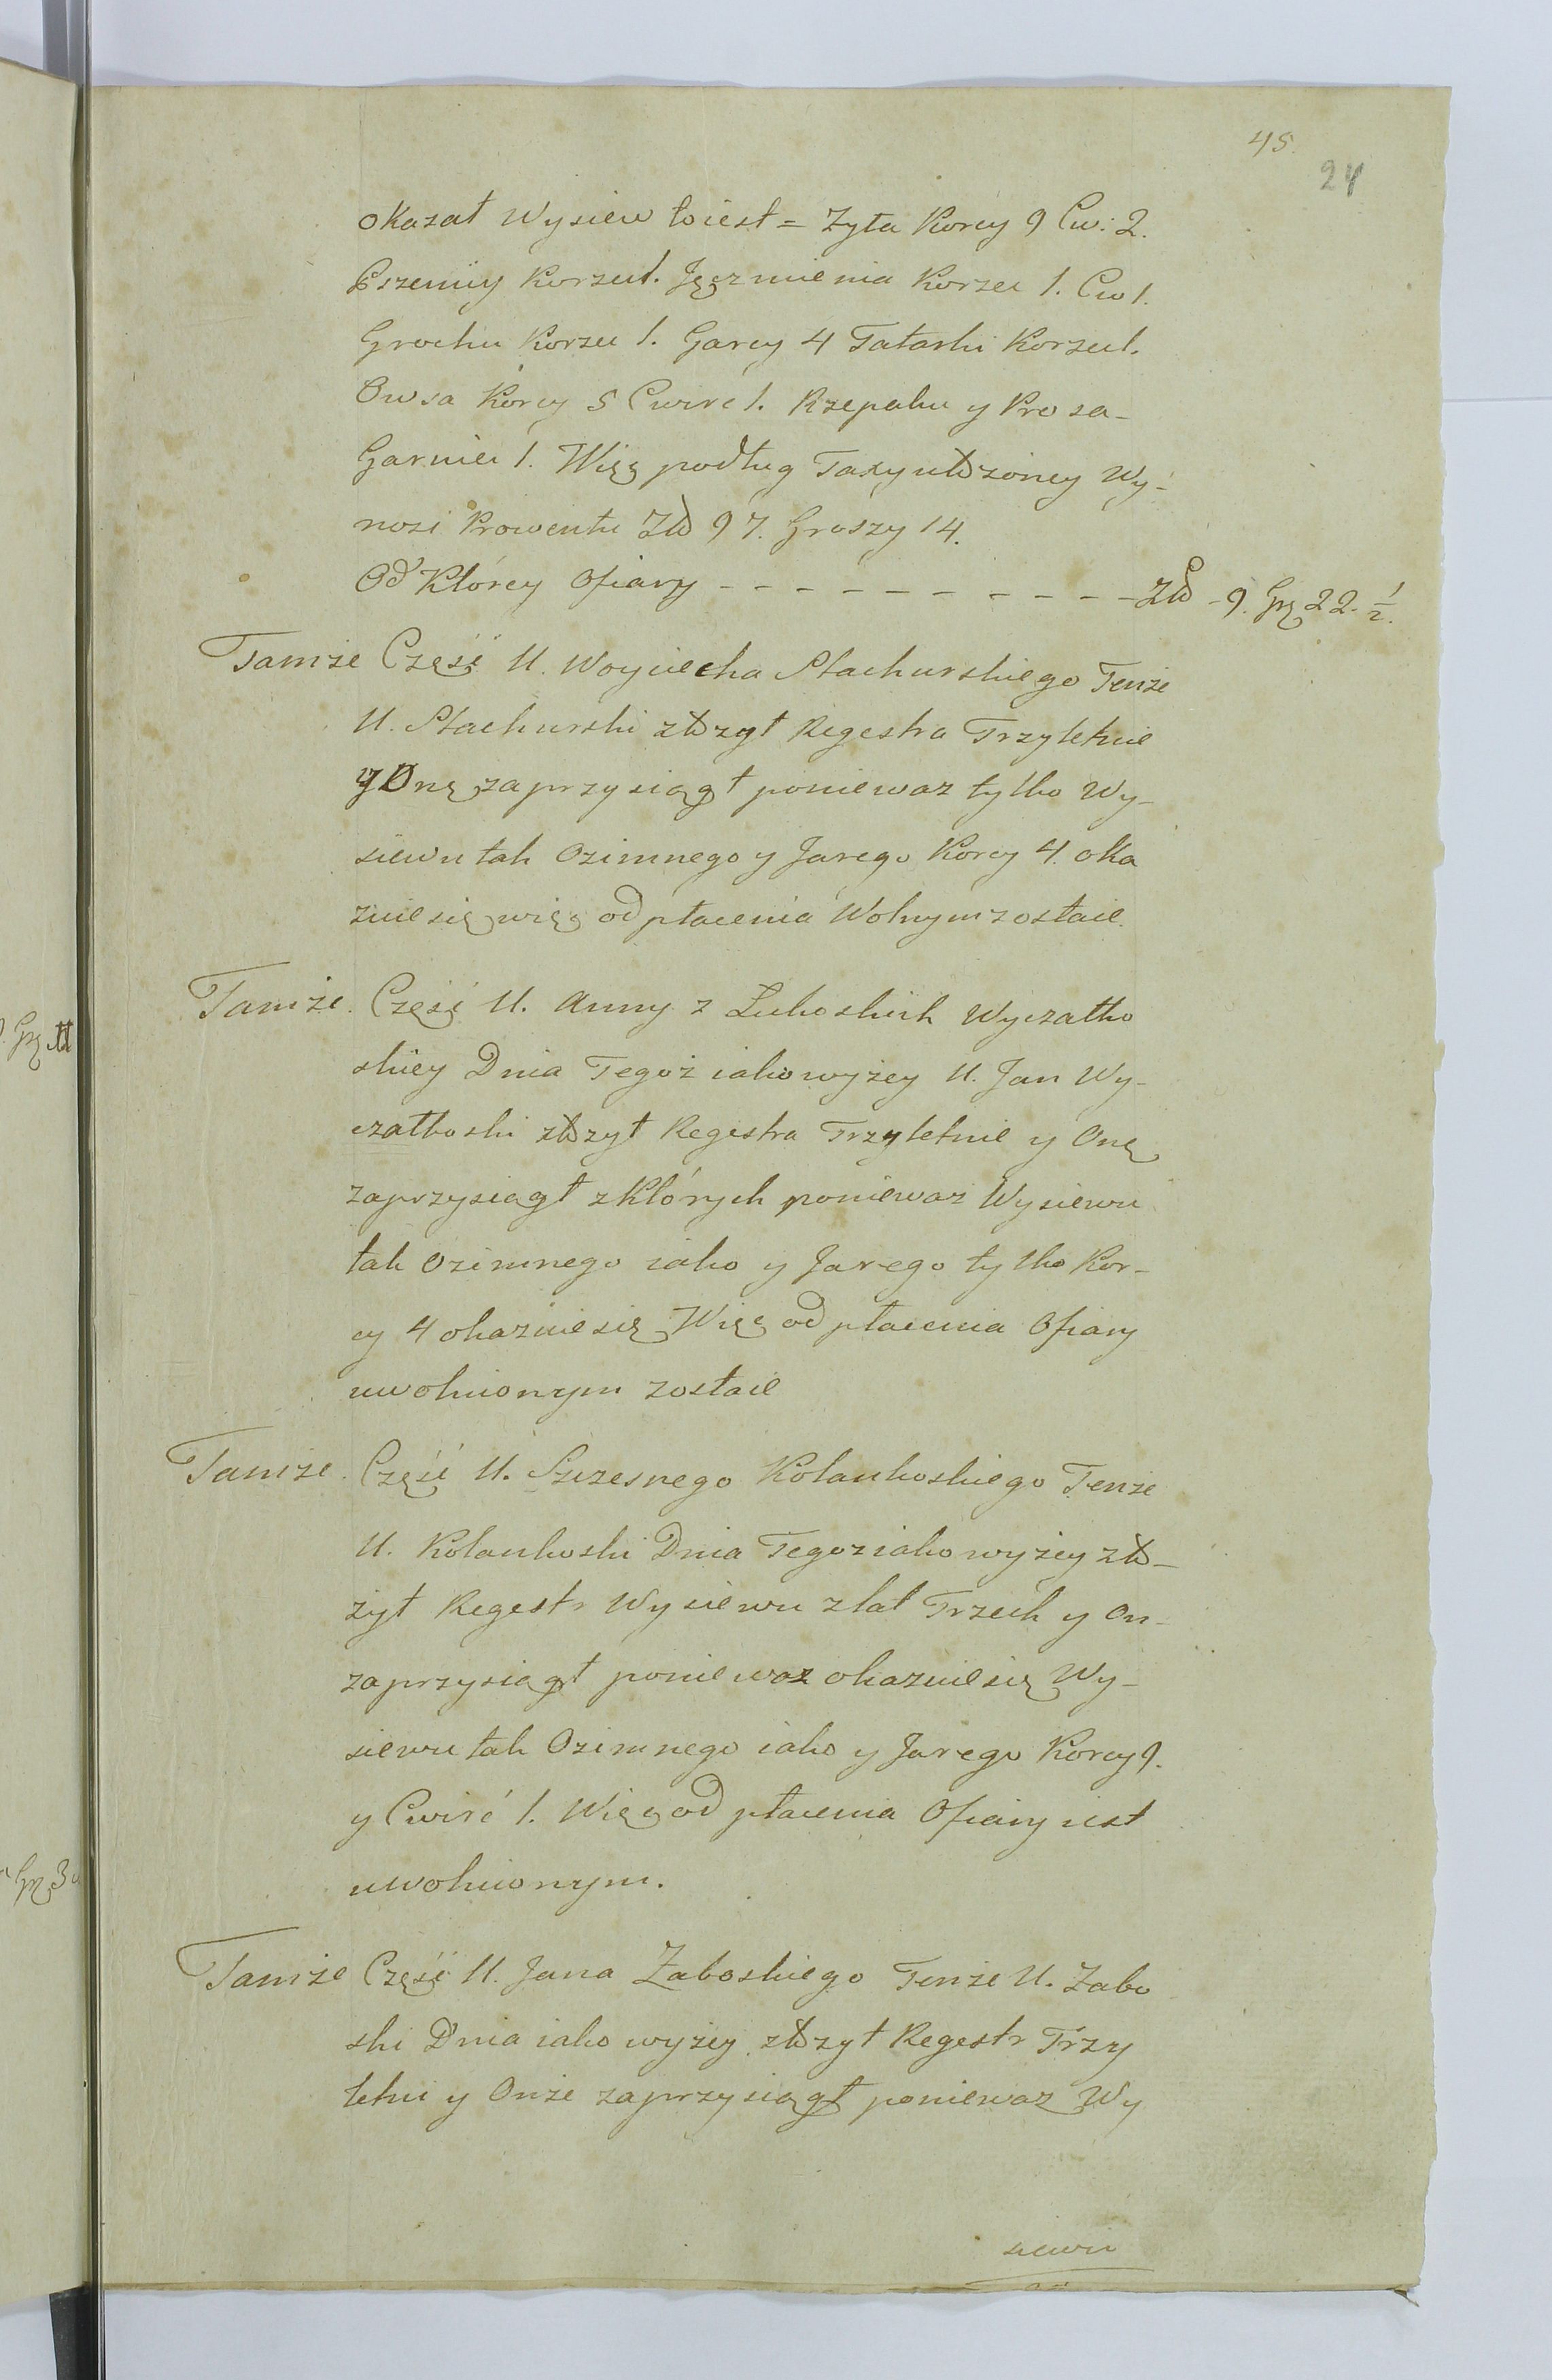 45.
24
okazał Wysiew to iest = Zyta Korcy 9 Cw: 2.
Pszenicy Korzec 1. Jęczmienia Korzec 1. Cw 1.
Grochu Korzec 1. Garcy 4 Tatarki Korzec 1.
Owsa Korcy 5 Cwirć 1. Rzepaku y Prosa –
Garniec 1. Więc podług Taxy ułożoney Wy-
nosi Prowentu Zło 97. Groszy 14.
Od Którey Ofiary - - - - - - - - - - Zło - 9. Gr 22. 1/2.
Tamże Część U. Woyciecha Stachurskiego Tenże
U. Stachurski złozył Regestra Trzyletnie
y One zaprzysiągł poniewaz tylko Wy-
siewu tak Ozimnego y Jarego Korcy 4. oka
zuie się więc od płacenia Wolnym zostaie.
Tamże. Część U. Anny z Łukoskich Wyczałko
skiey Dnia Tegoż iako wyżey U. Jan Wy-
czałkoski złozył Regestra Trzyletnie y One
zaprzysiągł z Których poniewaz Wysiewu
tak Ozimnego iako y Jarego tylko Kor-
cy 4 okazuie się Więc od płacenia Ofiary
uwolnionym zostaie
Tamże. Część U. Szczesnego Kolankoskiego Tenże
U. Kolankoski Dnia Tegoz iako wyżey zło-
żył Regestr Wysiewu z lat Trzech y On –
zaprzysiągł poniewaz okazuie się Wy-
siewu tak Ozimnego iako y Jarego Korcy 9.
y Cwirć 1. Więc od płacenia Ofiary iest
uwolnionym.
Tamże Część U. Jana Zaboskiego Tenże U. Zabo
ski Dnia iako wyżey złozył Regestr Trzy
letni y Onże zaprzysiągł poniewaz Wy
siewu